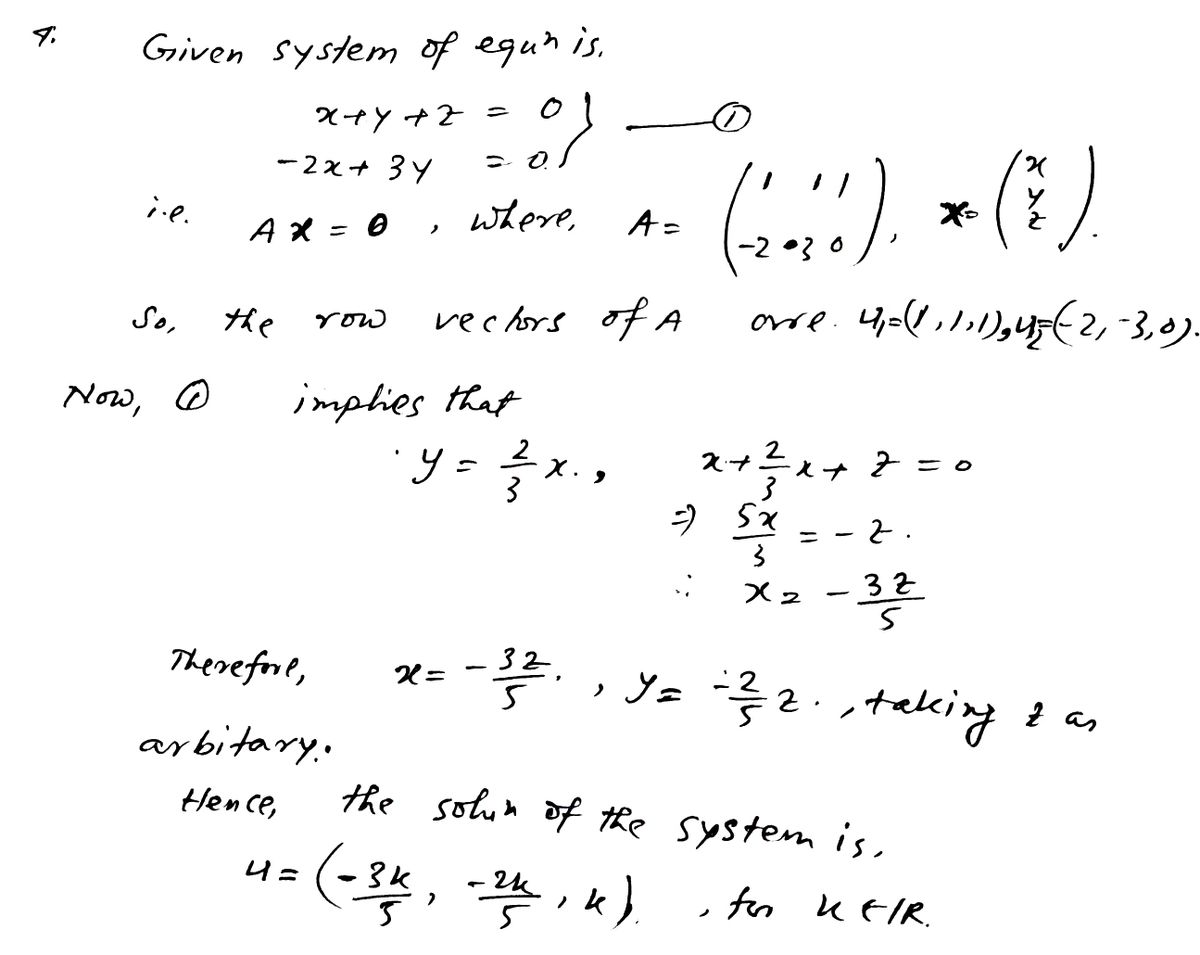 4. Given system of equn is.
x+y+z = 0 } —— ①
-2x+3y = 0.
i.e. Ax = θ, where, A = (1 1 1 / -2 3 0), x = (x y z).
So, the row vectors of A are. u₁=(1,1,1), u₂=(-2,-3,0).
Now, ① implies that
y = 2/3 x., x+2/3 x+z = 0
⇒ 5x/3 = -z.
∴ x = -3z/5
Therefore, x = -3z/5., y = -2/5 z., taking z as
arbitary.
Hence, the solun of the system is,
u = (-3k/5, -2k/5, k)., for k ∈ IR.